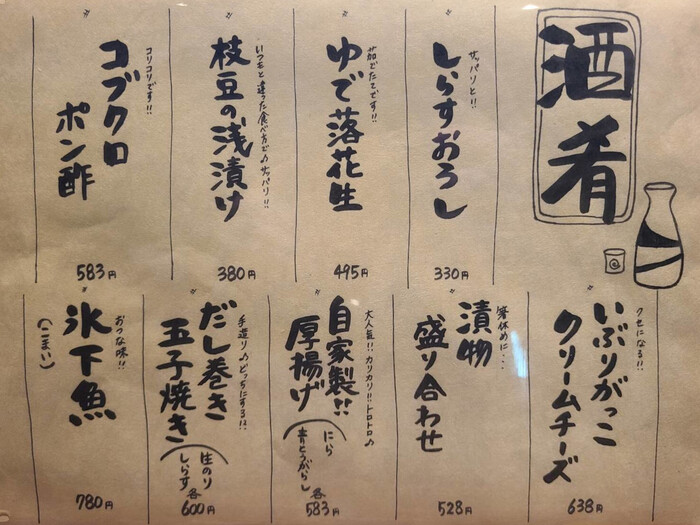 酒肴
サッパリと!!
しらすおろし
330円
茹でたてです!!
ゆで落花生
495円
いつもと違った食べ方で♪サッパリ!!
枝豆の浅漬け
380円
コリコリです!!
コブクロ
ポン酢
583円
クセになる!!
いぶりがっこ
クリームチーズ
638円
箸休めに…
漬物
盛り合わせ
528円
大人気!!カリカリ!!トロトロ♪
自家製!!
厚揚げ
(にら
青とうがらし)
各583円
手造り♪どっちにする!?
だし巻き
玉子焼き
(生のり
しらす)
各600円
おつな味!!
氷下魚
(こまい)
780円